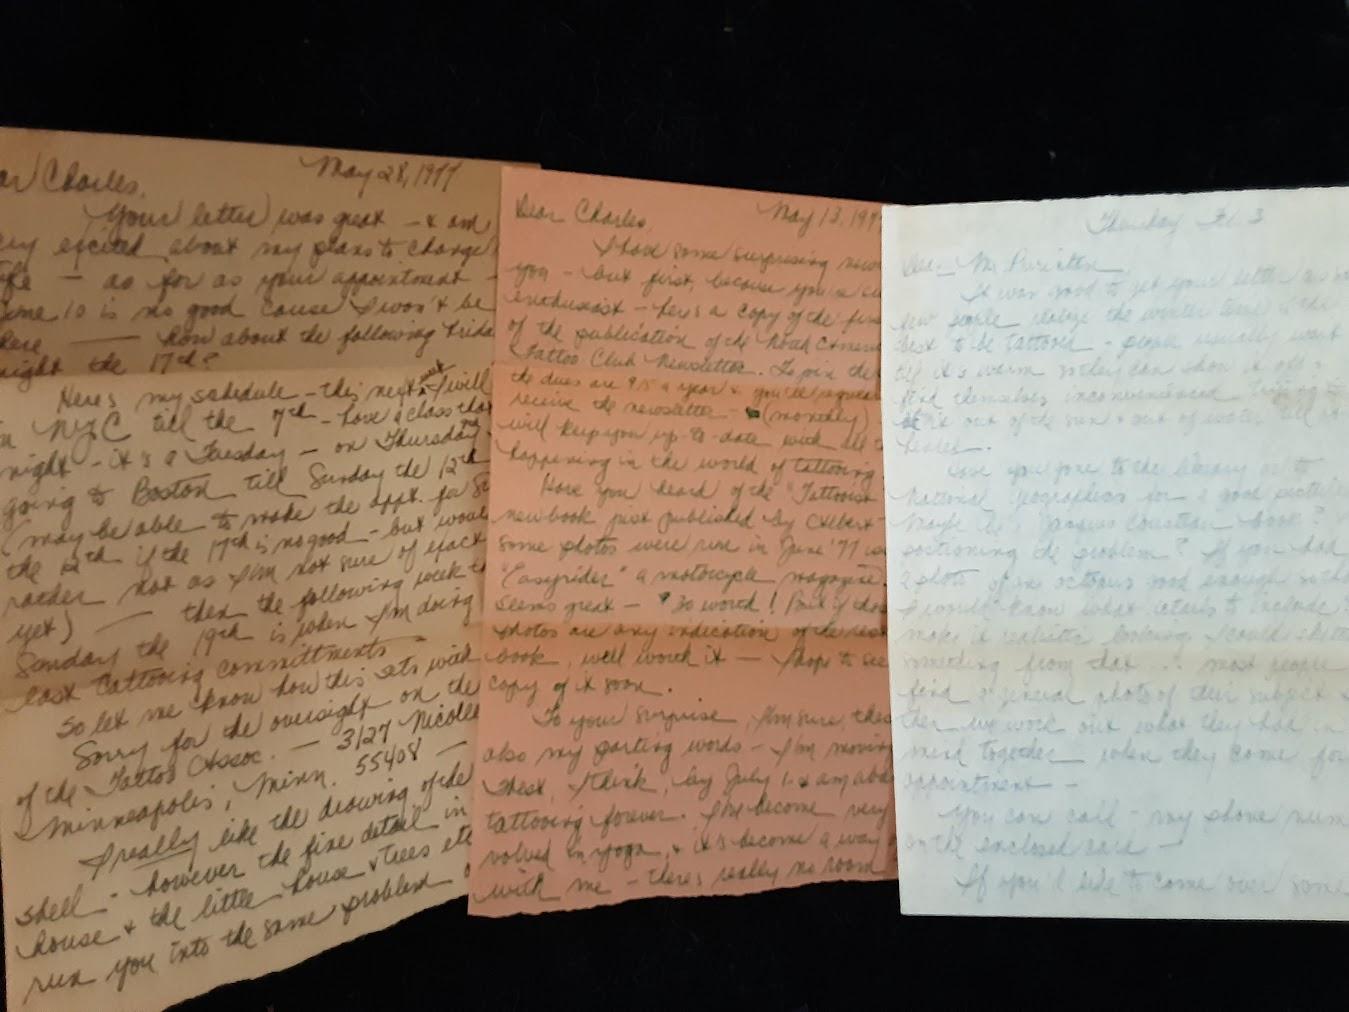 May 28, 1977
ar Charles,
Your letter was great - & am
ery excited about my plans to change
ife — as for as your appointment -
une 10 is no good cause I won't be
here —— how about the following Frida
night the 17th?
Here's my schedule - this next week I will
in NYC till the 7th - have a class that
night - it's a Tuesday - on Thursday
going to Boston till Sunday the 12th
(may be able to make the appt. for Su
the 12th if the 17th is no good - but would
rather not as I'm not sure of exact
yet) —— then the following week to
Sunday the 19th is when I'm doing
last tattooing committments
So let me know how this sets with
Sorry for the oversight on the
of the Tattoo Assoc. — 3127 Nicolle
Minneapolis, Minn. 55408 —
I really like the drawing of the
shell - however the fine detail in
house & the little house & trees etc
run you into the same problem o
May 13, 197
Dear Charles,
I have some surprising news
you - but first, because you're su
enthusiast - here's a copy of the firs
of the publication of the North Ameri
Tattoo Club Newsletter. To join the
the dues are $15 a year & you'll
receive the newsletter - (monthly)
will keep you up-to-date with all t
happening in the world of tattooing
Have you heard of the "Tattooist
new book just published by Albert
some photos were run in June '77 is
"Easyrider" a motorcycle magazine.
seems great - $30 worth! But if thos
photos are any indication of the rest
book, well worth it — I hope to see
copy of it soon.
To your surprise, I'm sure, thes
also my parting words - I'm moving
West, I think, by July 1. & am aba
tattooing forever. I've become very
volved in yoga, & it's become a way
with me - there's really no room
Thursday Feb. 3
Dear Mr. Purinton
It was good to get your letter as so
few people realize the winter time is the
best to be tattooed - people usually wait
til it's warm so they can show it off &
find themselves inconvenienced trying to
it out of the sun & out of water till it
heales.
Have you gone to the library or to
National Geographics for a good picture
Maybe a Jacques Cousteau book?
positioning the problem? If you had
a photo of an octopus good enough so tha
I would know what details to include
make it realistic looking I could sketch
something from that...? most people
find a general photo of their subject &
then we work out what they had in
mind together when they come for
appointment -
You can call - my phone num
on the enclosed card —
If you'd like to come over some